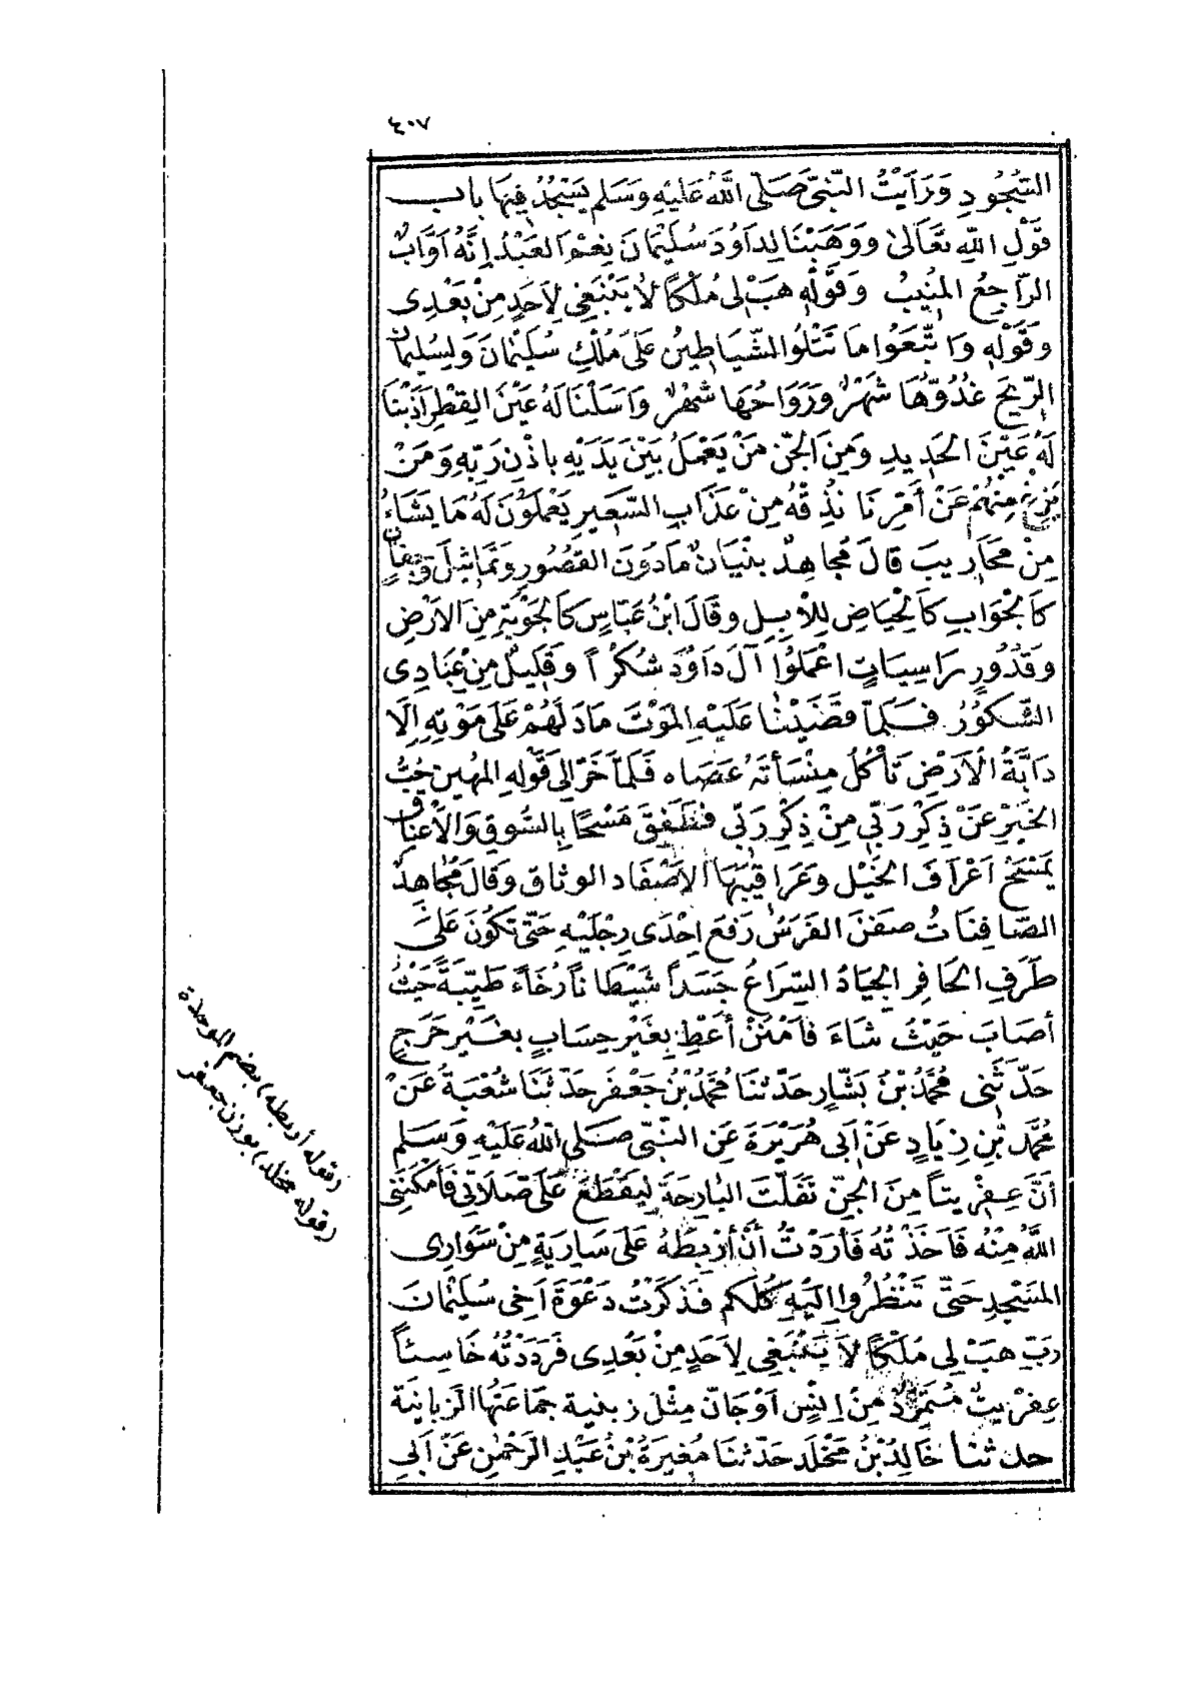 ٤٠٧
السُّجُودِ وَرَأَيْتُ النَّبِيَّ صَلَّى اللَّهُ عَلَيْهِ وَسَلَّم يَسْجُدُ فِيهَا باب
قَوْلِ اللَّهِ تَعَالَى وَوَهَبْنَا لِدَاوُدَ سُلَيْمَانَ نِعْمَ العَبْدُ إِنَّهُ أَوَّابٌ
الرَّاجِعُ المُنِيبُ وَقَوْلِهِ هَبْ لِي مُلْكًا لَا يَنْبَغِي لِأَحَدٍ مِنْ بَعْدِى
وَقَوْلِهِ وَاتَّبَعُوا مَا تَتْلُوا الشَّيَاطِينُ عَلَى مُلْكِ سُلَيْمَانَ وَلِسُلَيْمَانَ
الرِّيحَ غُدُوُّهَا شَهْرٌ وَرَوَاحُهَا شَهْرٌ وَأَسَلْنَا لَهُ عَيْنَ القِطْرِ أَذَبْنَا
لَهُ عَيْنَ الحَدِيدِ وَمِنَ الجِنِّ مَنْ يَعْمَلُ بَيْنَ يَدَيْهِ بِإِذْنِ رَبِّهِ وَمَنْ
يَزِغْ مِنْهُمْ عَنْ أَمْرِنَا نُذِقْهُ مِنْ عَذَابِ السَّعِيرِ يَعْمَلُونَ لَهُ مَا يَشَاءُ
مِنْ مَحَارِيبَ قَالَ مُجَاهِدٌ بُنْيَانٌ مَا دُونَ القُصُورِ وَتَمَاثِيلَ وَجِفَانٍ
كَالجَوَابِ كَالحِيَاضِ لِلْإِبِلِ وَقَالَ ابْنُ عَبَّاسٍ كَالجَوْبَةِ مِنَ الأَرْضِ
وَقُدُورٍ رَاسِيَاتٍ اعْمَلُوا آلَ دَاوُدَ شُكْرًا وَقَلِيلٌ مِنْ عِبَادِى
الشَّكُورُ فَلَمَّا قَضَيْنَا عَلَيْهِ المَوْتَ مَا دَلَّهُمْ عَلَى مَوْتِهِ إِلَّا
دَابَّةُ الأَرْضِ تَأْكُلُ مِنْسَأَتَهُ عَصَاه فَلَمَّا خَرَّ إِلَى قَوْلِهِ المُهِينِ حُبَّ
الخَيْرِ عَنْ ذِكْرِ رَبِّي مِنْ ذِكْرِ رَبِّي فَطَفِقَ مَسْحًا بِالسُّوقِ وَالأَعْنَاقِ
يَمْسَحُ أَعْرَافَ الخَيْلِ وَعَرَاقِيبَهَا الأَصْفَاد الوثاق وَقَالَ مُجَاهِدٌ
الصَّافِنَاتُ صَفَنَ الفَرَسُ رَفَعَ إِحْدَى رِجْلَيْهِ حَتَّى تَكُونَ عَلَى
طَرَفِ الحَافِرِ الجِيَادُ السِّرَاعُ جَسَدًا شَيْطَانًا رُخَاءً طَيِّبَةً حَيْثُ
أَصَابَ حَيْثُ شَاءَ فَامْنُنْ أَعْطِ بِغَيْرِ حِسَابٍ بِغَيْرِ حَرَجٍ
حَدَّثَنِي مُحَمَّدُ بْنُ بَشَّارٍ حَدَّثَنَا مُحَمَّدُ بْنُ جَعْفَرٍ حَدَّثَنَا شُعْبَةُ عَنْ
مُحَمَّدِ بْنِ زِيَادٍ عَنْ أَبِي هُرَيْرَةَ عَنِ النَّبِيِّ صَلَّى اللَّهُ عَلَيْهِ وَسَلَّم
أَنَّ عِفْرِيتًا مِنَ الجِنِّ تَفَلَّتَ البَارِحَةَ لِيَقْطَعَ عَلَيَّ صَلَاتِي فَأَمْكَنَنِي
اللَّهُ مِنْهُ فَأَخَذْتُهُ فَأَرَدْتُ أَنْ أَرْبُطَهُ عَلَى سَارِيَةٍ مِنْ سَوَارِى
المَسْجِدِ حَتَّى تَنْظُرُوا إِلَيْهِ كُلُّكُم فَذَكَرْتُ دَعْوَةَ أَخِي سُلَيْمَانَ
رَبِّ هَبْ لِي مُلْكًا لَا يَنْبَغِي لِأَحَدٍ مِنْ بَعْدِى فَرَدَدْتُهُ خَاسِئًا
عِفْرِيتٌ مُتَمَرِّدٌ مِنْ إِنْسٍ أَوْ جَانٍّ مِثْل زبنية جَمَاعَتُهَا الزَّبَانِيَةُ
حدثنا خَالِدُ بْنُ مَخْلَدٍ حَدَّثَنَا مُغِيرَةُ بْنُ عَبْدِ الرَّحْمَنِ عَنْ أَبِي
(قوله أربطه) بضم الموحدة
(قوله مخلد) بوزن جعفر